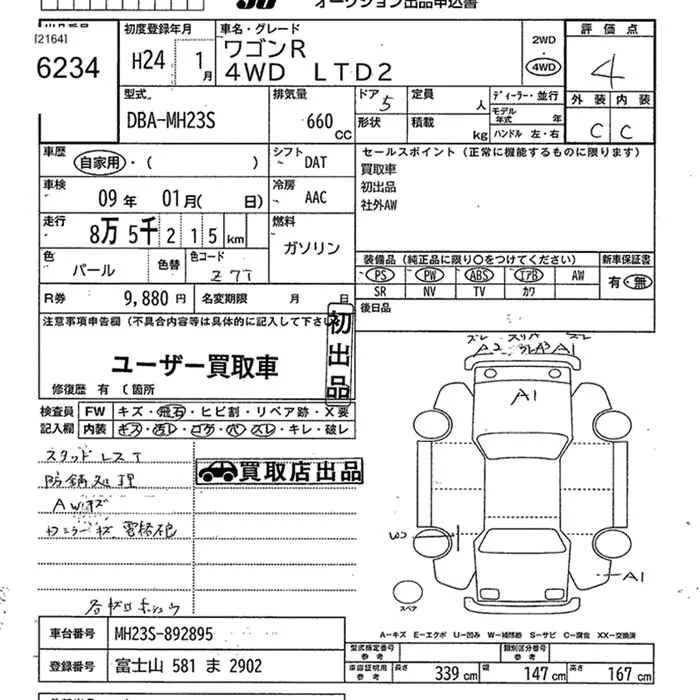 オークション出品申込書
[2164]
6234
初度登録年月
H24 1月
車名・グレード
ワゴンR
4WD LTD2
2WD
4WD
評価点
4
外装 内装
C C
型式
DBA-MH23S
排気量
660 CC
ドア 5
形状
定員 人
積載 kg
ディーラー・並行
モデル年式 年
ハンドル 左・右
車歴
自家用・( )
シフト DAT
車検
09年 01月( 日)
冷房 AAC
走行
8万5千215km
燃料
ガソリン
色
パール
色替
色コード
Z7T
R券 9,880円 名変期限 月 日
セールスポイント(正常に機能するものに限ります)
買取車
初出品
社外AW
装備品(純正品に限り○をつけてください)
新車保証書
PS PW ABS エアB AW
SR NV TV カワ
有・無
後日品
注意事項申告欄(不具合内容等は具体的に記入して下さい)
初出品
ユーザー買取車
修復歴 有 (箇所
検査員記入欄
FW キズ・飛石・ヒビ割・リペア跡・X要
内装 キズ・汚レ・コゲ・穴・スレ・キレ・破レ
防錆処理
AWキズ
買取店出品
A2
A1
A1
スペア
A-キズ E-エクボ U-凹み W-補修跡 S-サビ C-腐食 XX-交換済
車台番号 MH23S-892895
登録番号 富士山 581 ま 2902
型式指定番号 参考
類別区分番号 参考
車庫証明用 参考 長さ 339cm 幅 147cm 高さ 167cm